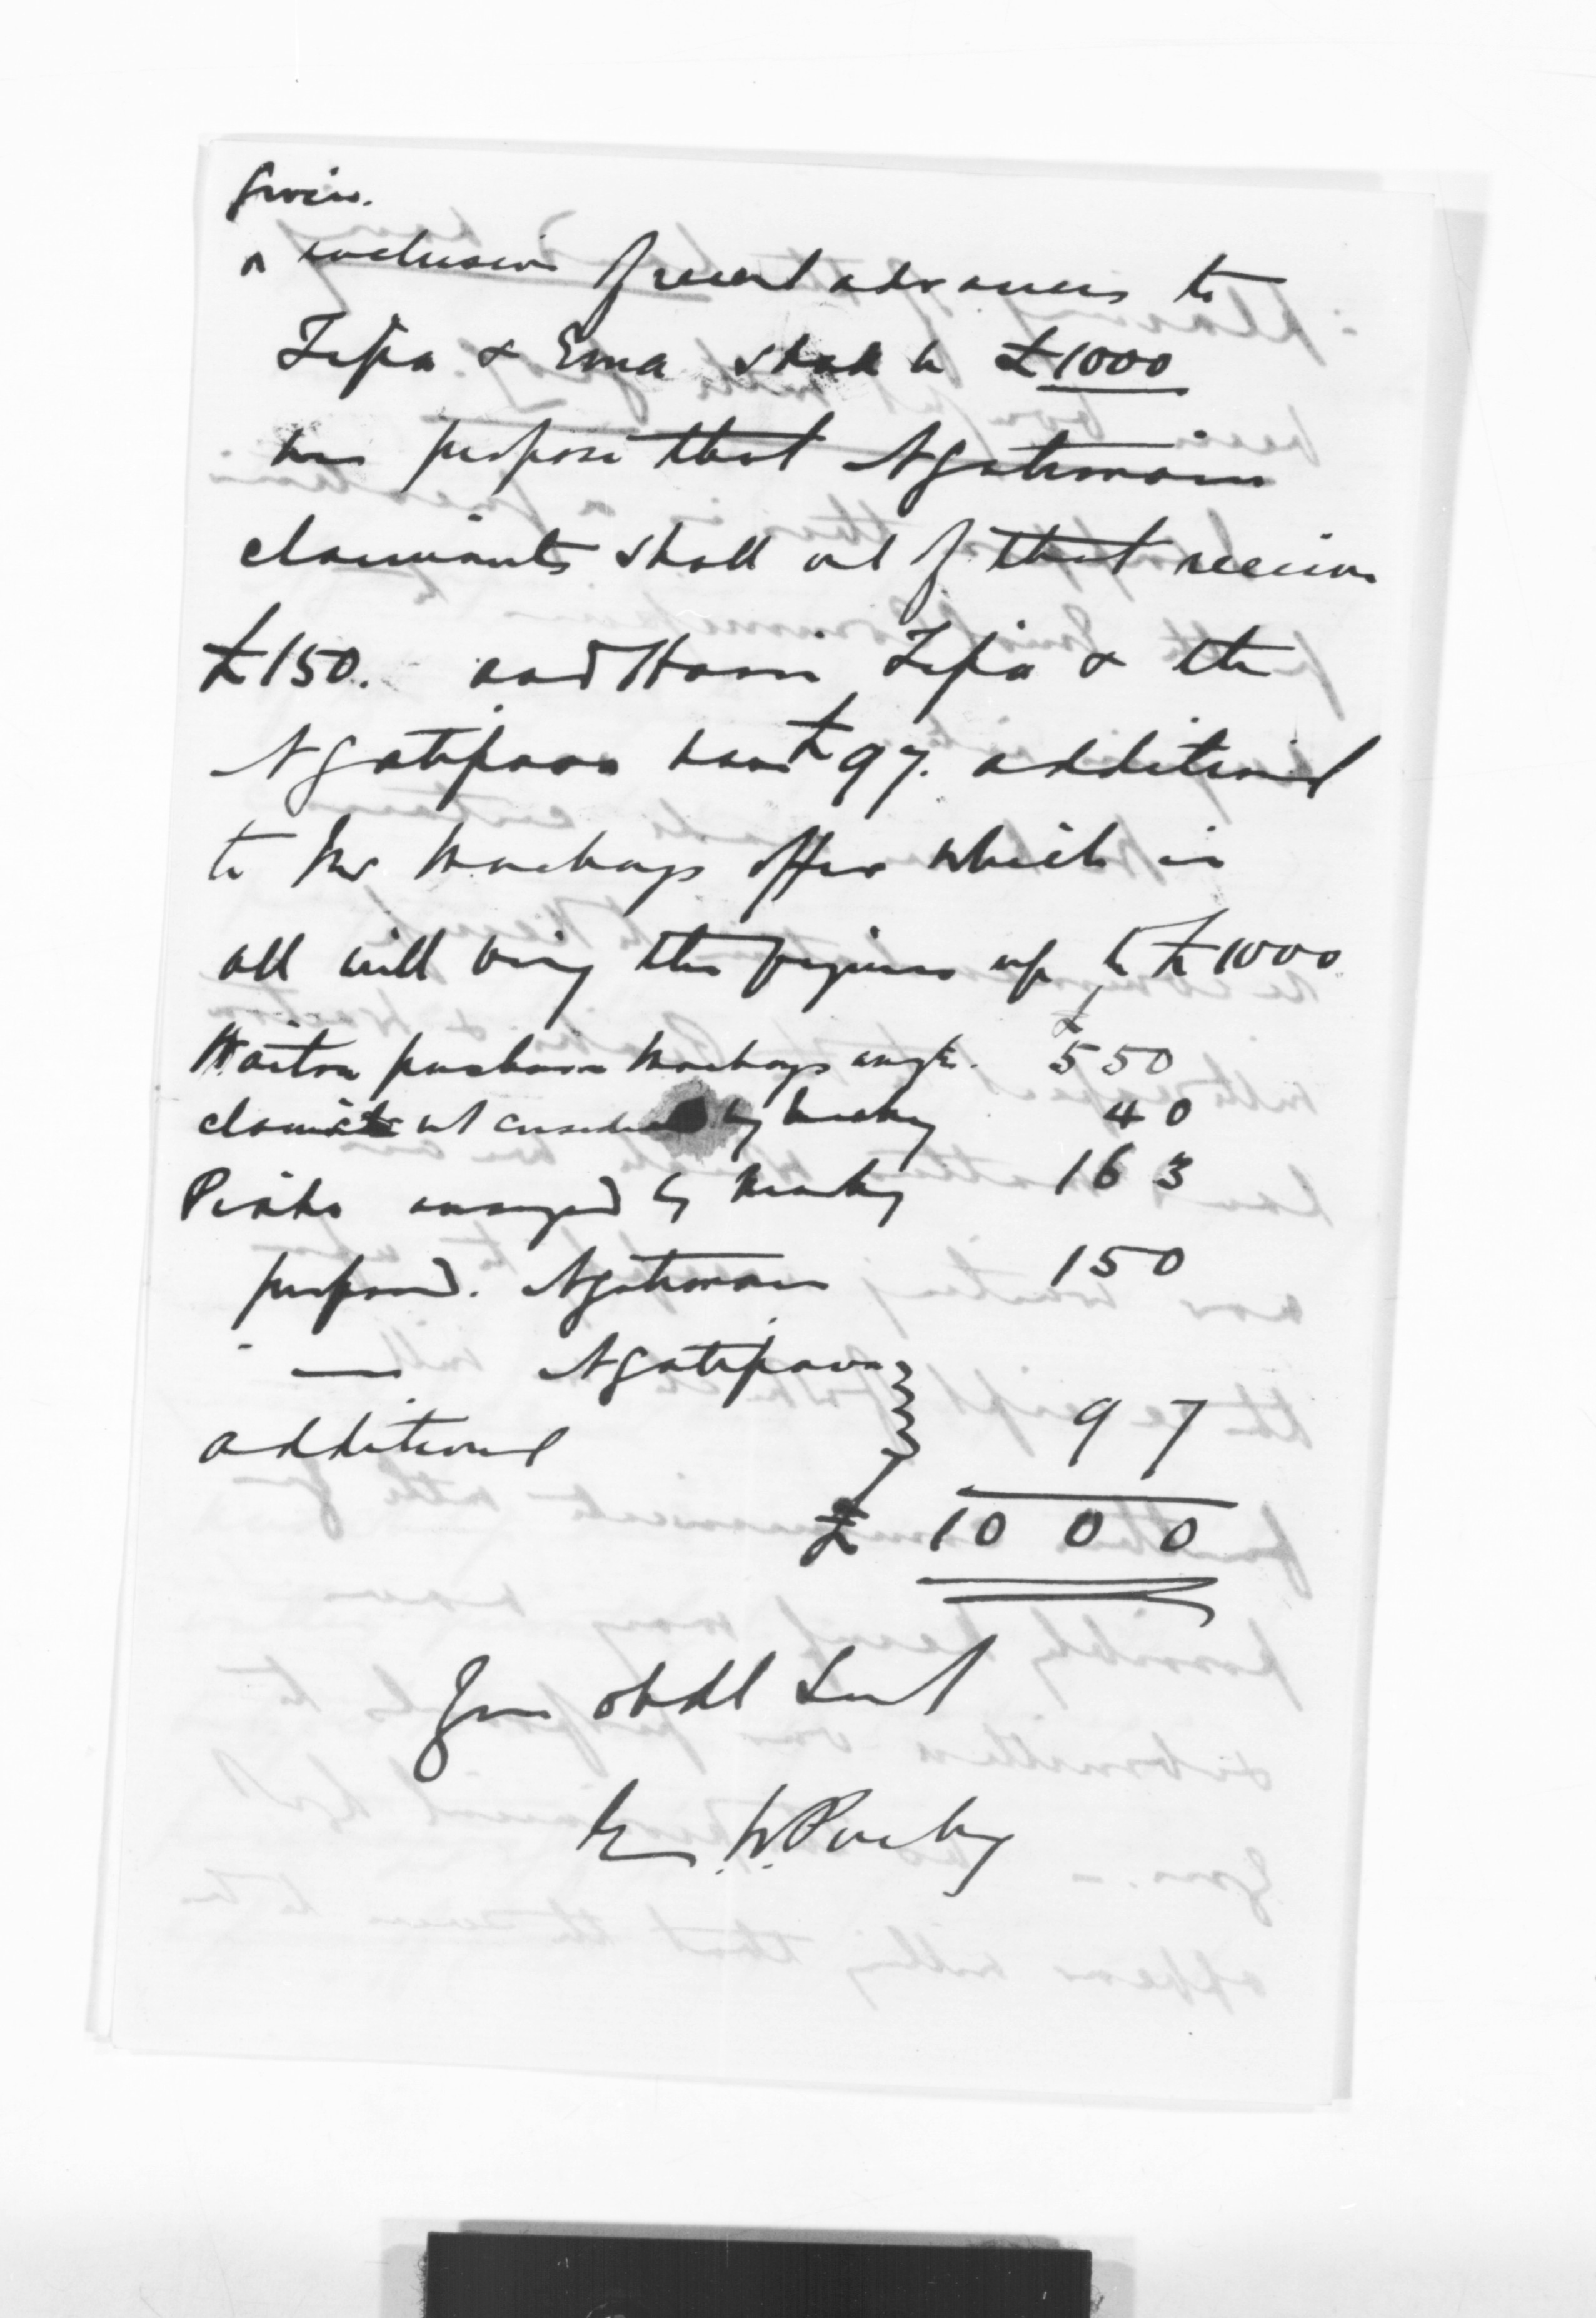 given.
^ inclusive of recent advances to
Tipa & Ema shall be £1000
propose that Ngatimaru
claimants shall out of that receive
£150. and Tipa & the
Ngatipaoa have £97. additional
to Mr Mackays offer which in
all will bring the figures up to £1000
£
Waitoa purchase Mackays 550
claimants not by Mackay 40
Piako arranged by Mackay 163
proposed. Ngatimaru 150
" — Ngatipaoa }
additional 97
£ 1000
Your obdt Servt
E. W. Puckey